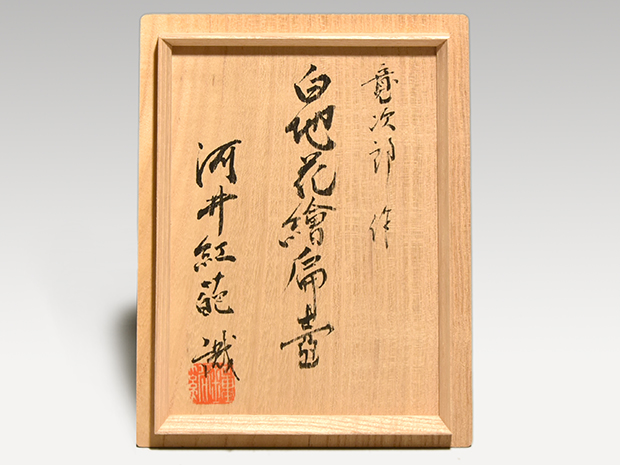 寛次郎 作
白地花繪扁壺
河井紅葩 識